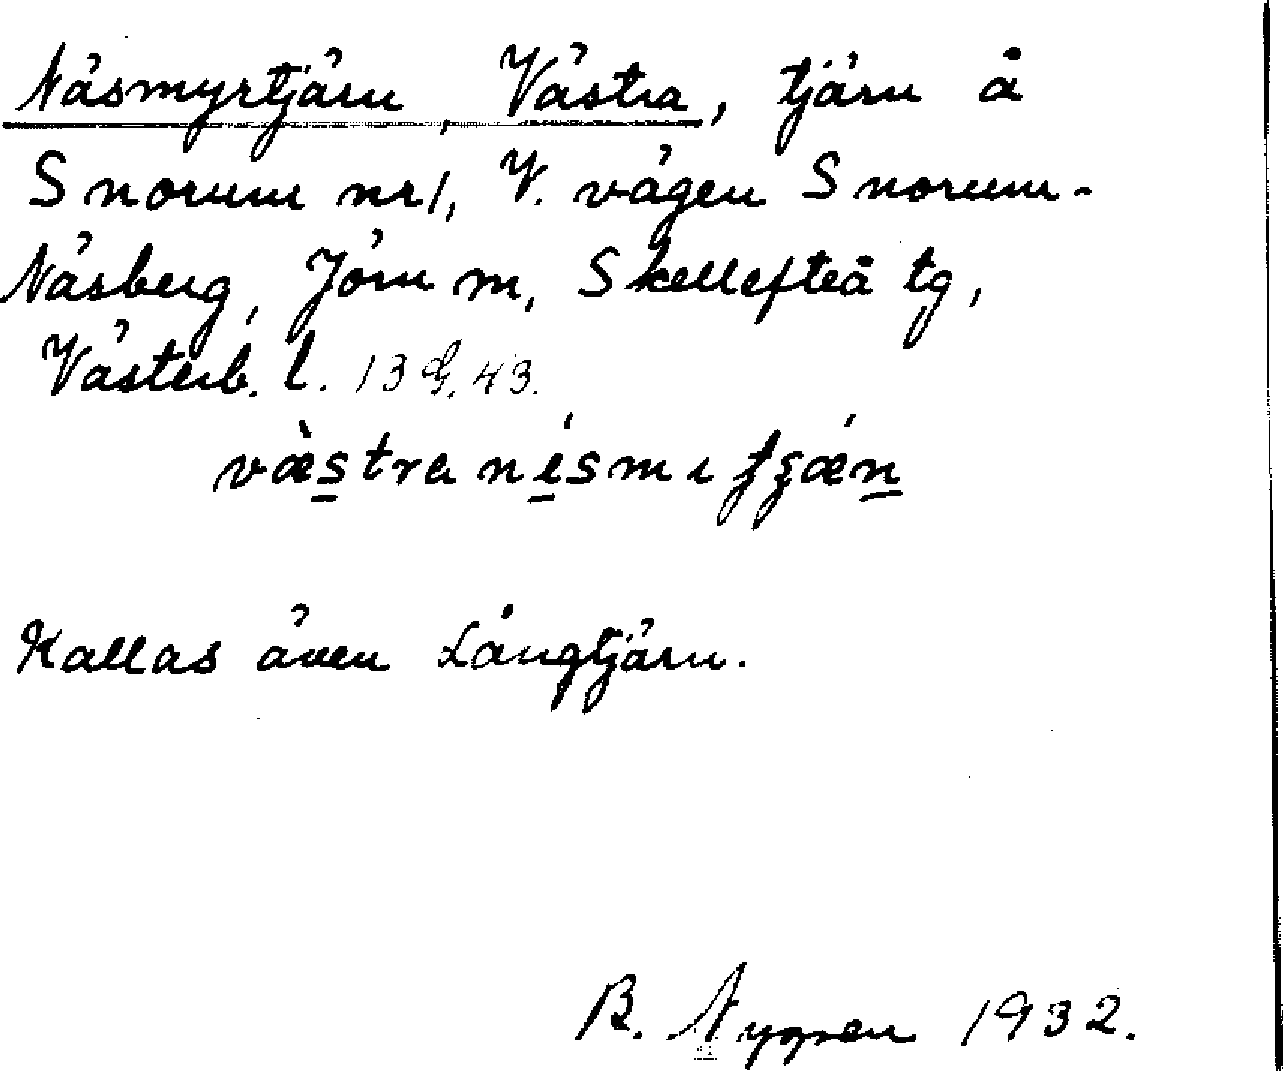 Näsmyrtjärn, Västra, tjärn å
Snorum nr 1, V. vägen Snorum-
Näsberg, Jörn sn, Skellefteå tg,
Västerb. l. 13 G. 43.
væ̀stra nésmɩ
Kallas även Långtjärn.
B. Nygren 1932.